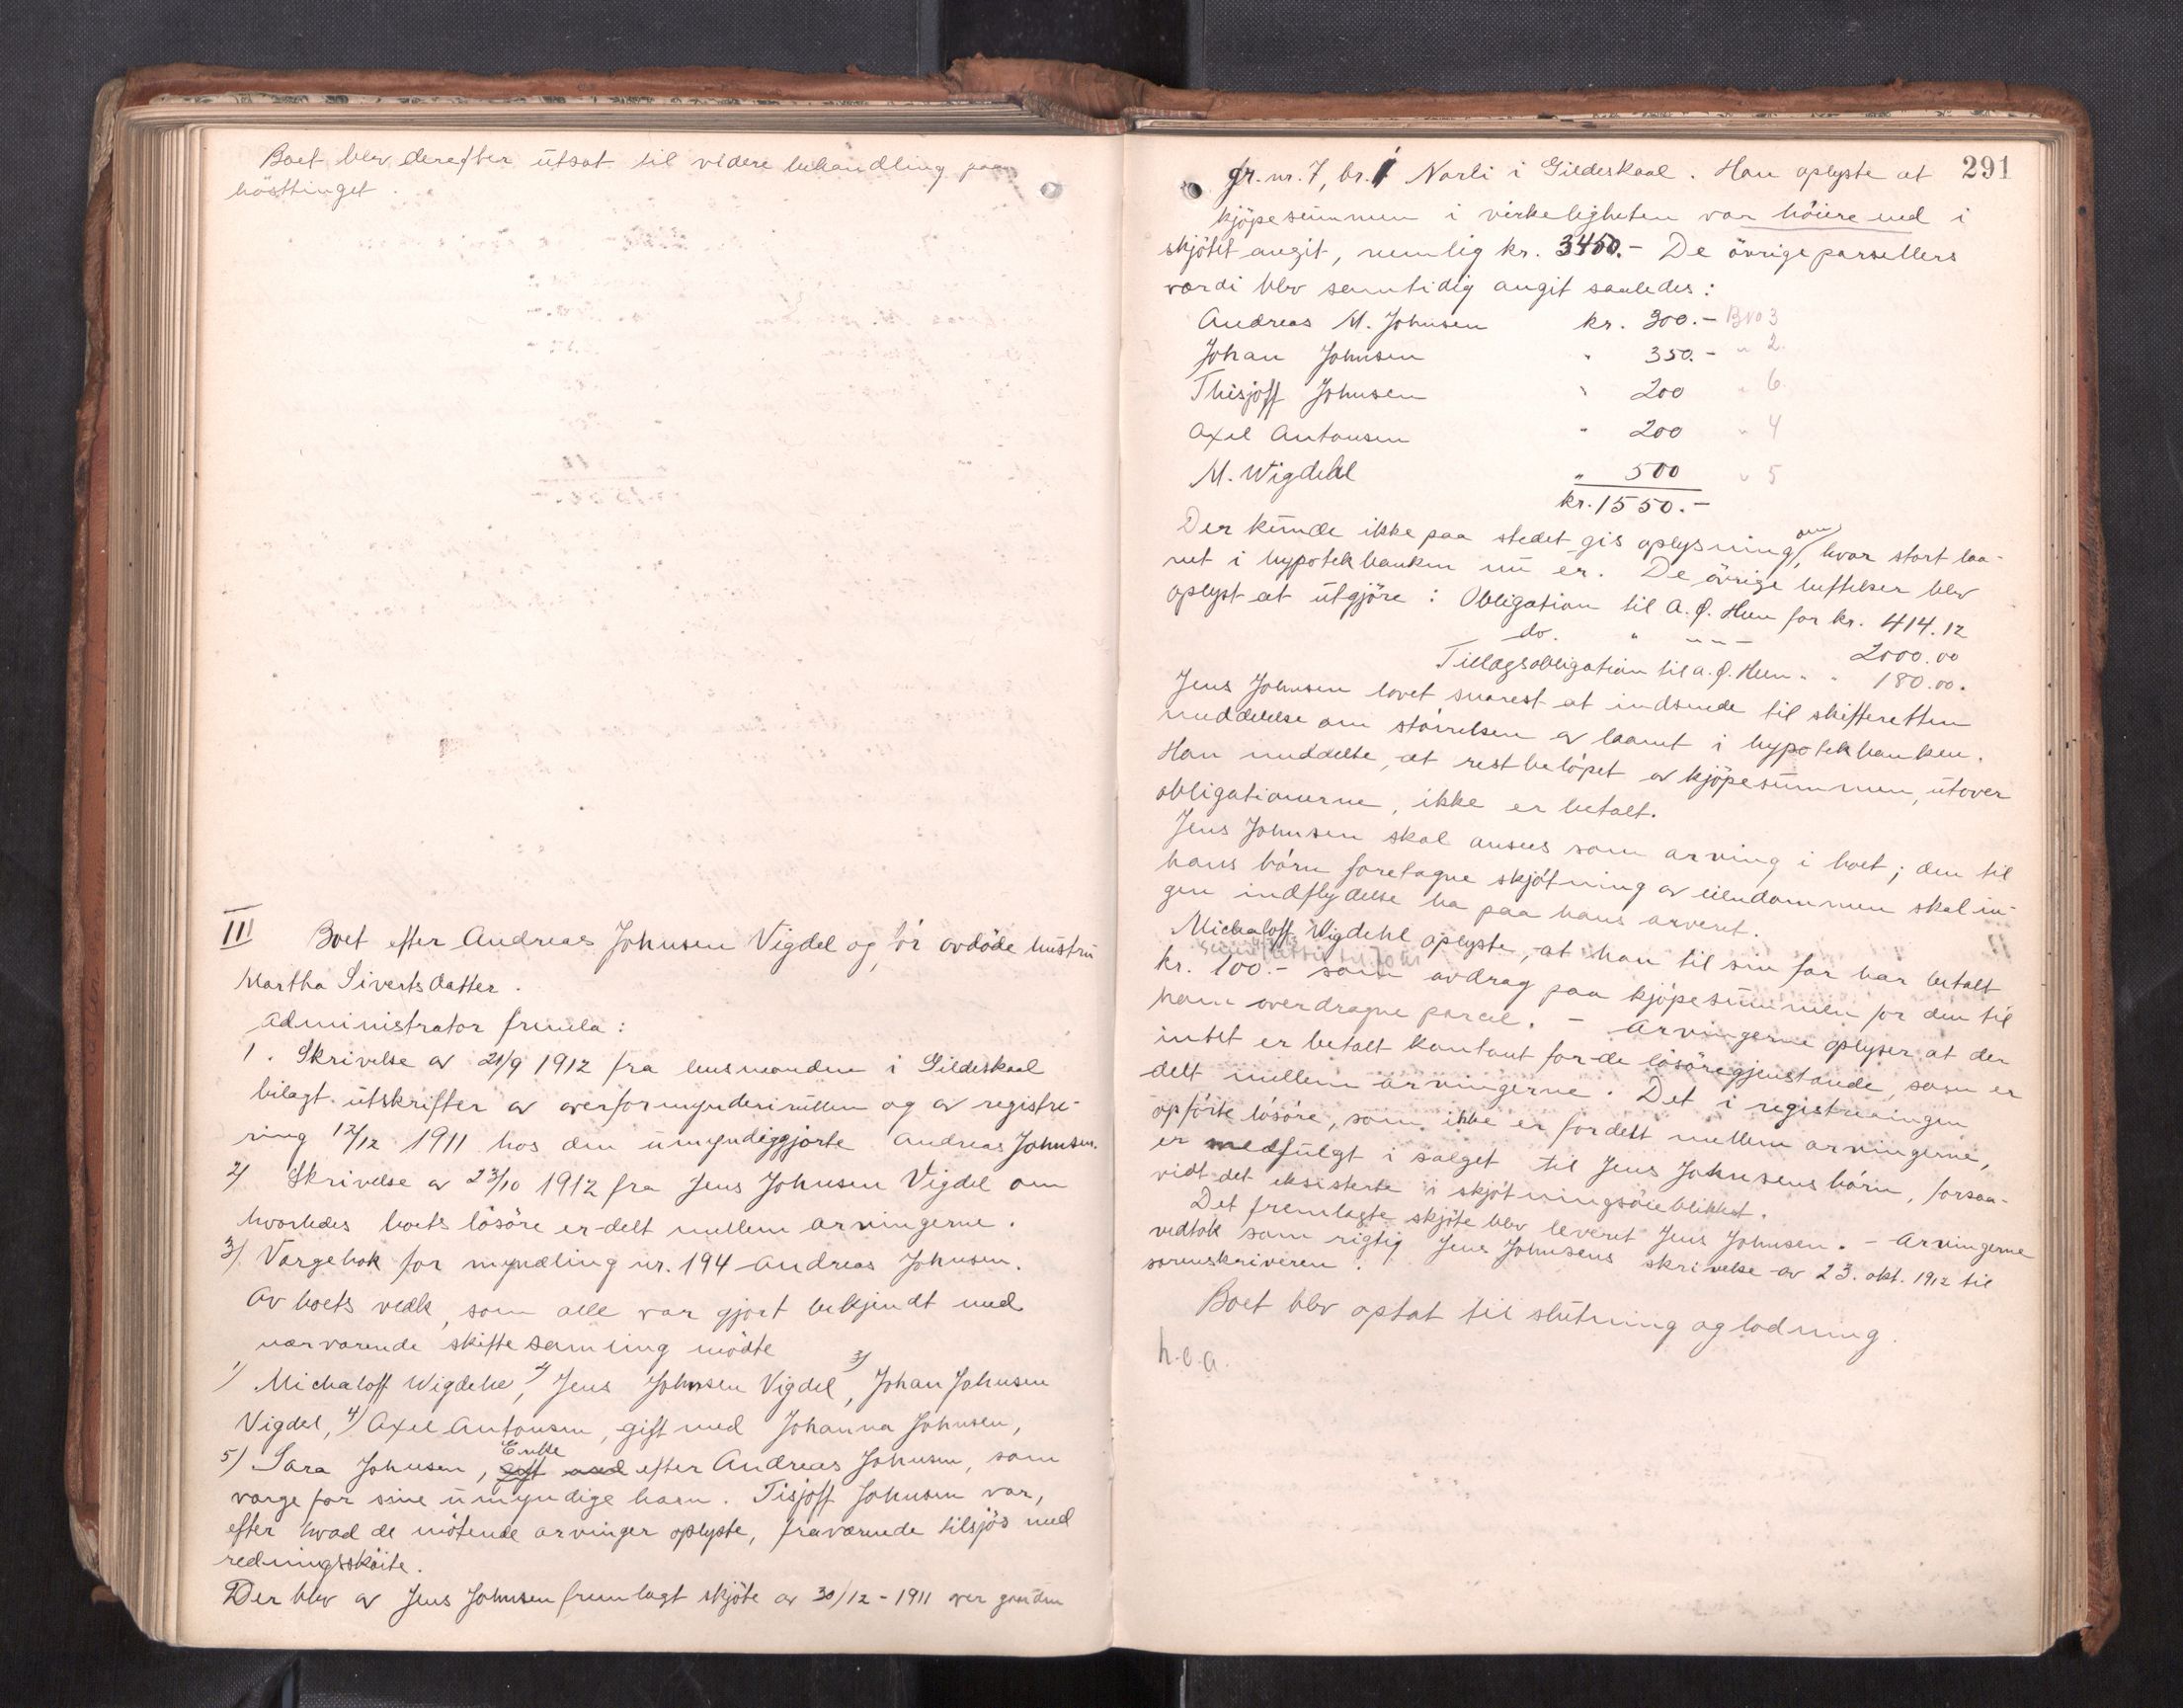 Boet blev derefter utsat til videre behandling paa
hösttinget.
III Boet efter Andreas Johnsen Vigdel og för avdöde hustru
Martha Sivertsdatter.
Administrator fremla:
1. Skrivelse av 21/9 1912 fra lensmanden i Gildeskaal
bilagt utskrifter av overformynderirullen og av registre-
ring 12/12 1911 hos den umyndiggjorte Andreas Johnsen.
2) Skrivelse av 23/10 1912 fra Jens Johnsen Vigdel om
hvorledes boets lösöre er delt mellem arvingerne.
3) Vergebok for myndling nr. 194 Andreas Johnsen.
Av boets vedk, som alle var gjort bekjendt med
nærværende skiftesamling mödte
1) Michaloff Wigdehl, 2) Jens Johnsen Vigdel, 3) Johan Johnsen
Vigdel, 4) Axel Antonsen, gift med Johanna Johnsen,
5) Sara Johnsen, gift med Enke efter Andreas Johnsen, som
verge for sine umyndige barn. Tisjoff Johnsen var,
efter hvad de mötende arvinger oplyste, fraværende tilsjös med
redningssköite.
Der blev av Jens Johnsen fremlagt skjöte av 30/12-1911 over gaarden
291
gr. nr. 7, br. 1 Narli i Gildeskaal. Han oplyste at
kjöpesummen i virkeligheten var höiere end i
skjötet angit, nemlig kr. 3450.- De övrige parsellers
værdi blev samtidig angit saaledes:
Andreas M. Johnsen kr. 300.- BNo 3
Johan Johnsen " 350.- " 2.
Thisjoff Johnsen " 200 " 6.
Axel Antonsen " 200 " 4
M. Wigdehl " 500 " 5
kr. 1550.-
Der kunde ikke paa stedet gis oplysning om, hvor stort laa-
net i hypotekbanken nu er. De övrige heftelser blev
oplyst at utgjöre: Obligation til A. J. Hem for kr. 414.12
do. " " " - 2000.00
Tillægsobligation til A. J. Hem " " 180.00.
Jens Johnsen lovet snarest at indsende til skifteretten
meddelelse om störrelsen av laanet i hypotekbanken.
Han meddelte, at restbelöpet av kjöpesummen, utover
obligationerne, ikke er betalt.
Jens Johnsen skal ansees som arving i boet; den til
hans börn foretagne skjötning av eiendommen skal in-
gen indflydelse ha paa hans arveret.
Michaloff Wigdehl oplyste, at han til sin far har betalt
kr. 100.- som avdrag paa kjöpesummen for den til
ham overdragne parcel. - Arvingerne oplyser at der
intet er betalt kontant for de lösöregjenstande, som er
delt mellem arvingerne. Det i registreringen
opförte lösöre, som ikke er fordelt mellem arvingerne,
er medfulgt i salget til Jens Johnsens börn, forsaa-
vidt det eksisterte i skjötningsöieblikket.
Det fremlagte skjöte blev leveret Jens Johnsen. - Arvingerne
vedtok som rigtig Jens Johnsens skrivelse av 23. okt. 1912 til
sorenskriveren.
Boet blev optat til slutning og lodning.
h.e.a.